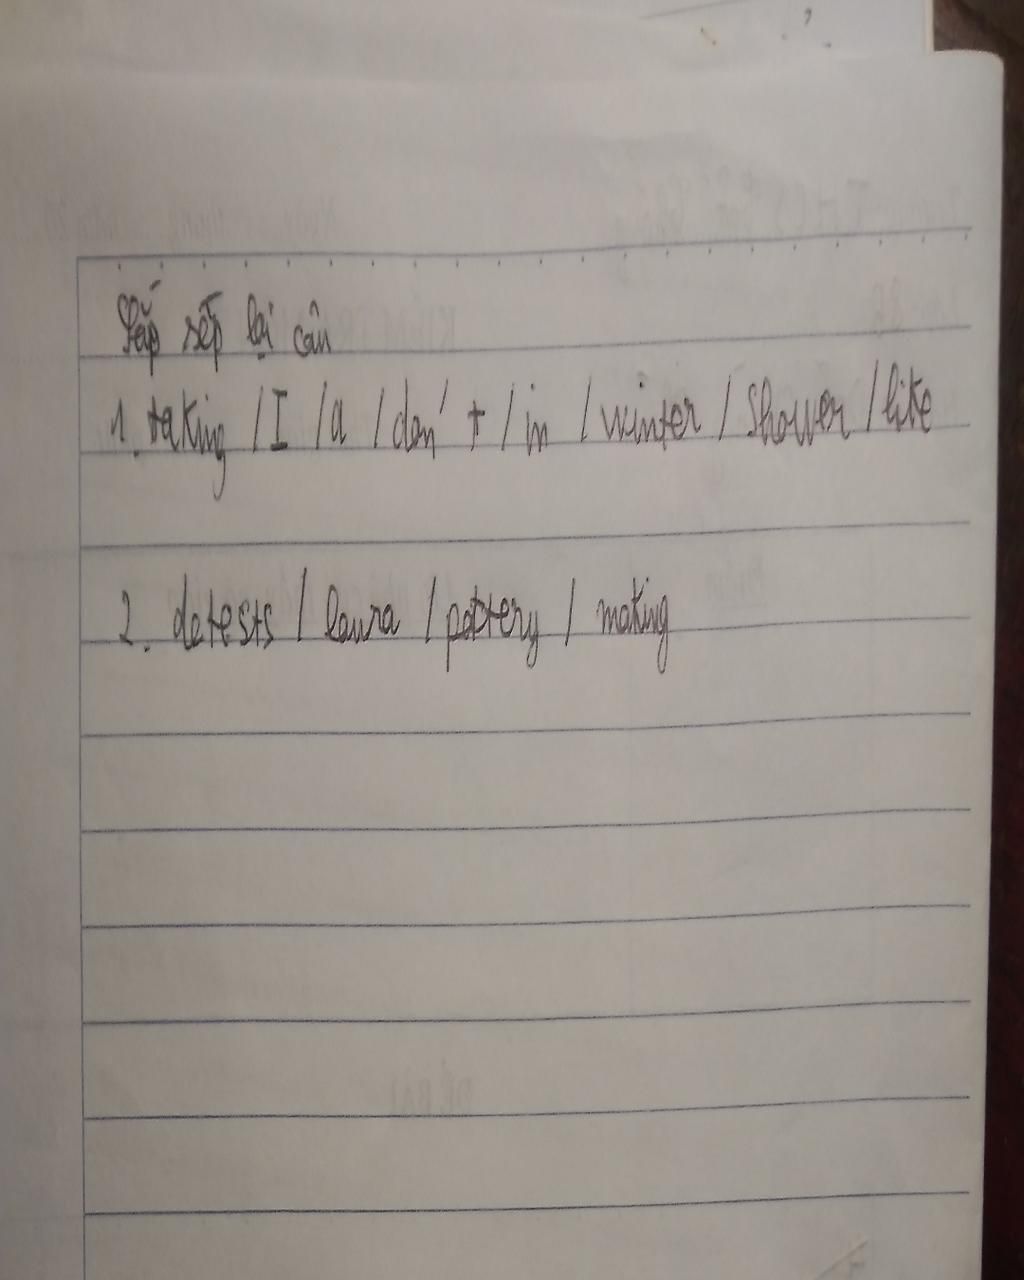 Sắp sếp lại câu
1. taking / I / a / don't / in / winter / shower / like
2. detests / laura / pottery / making